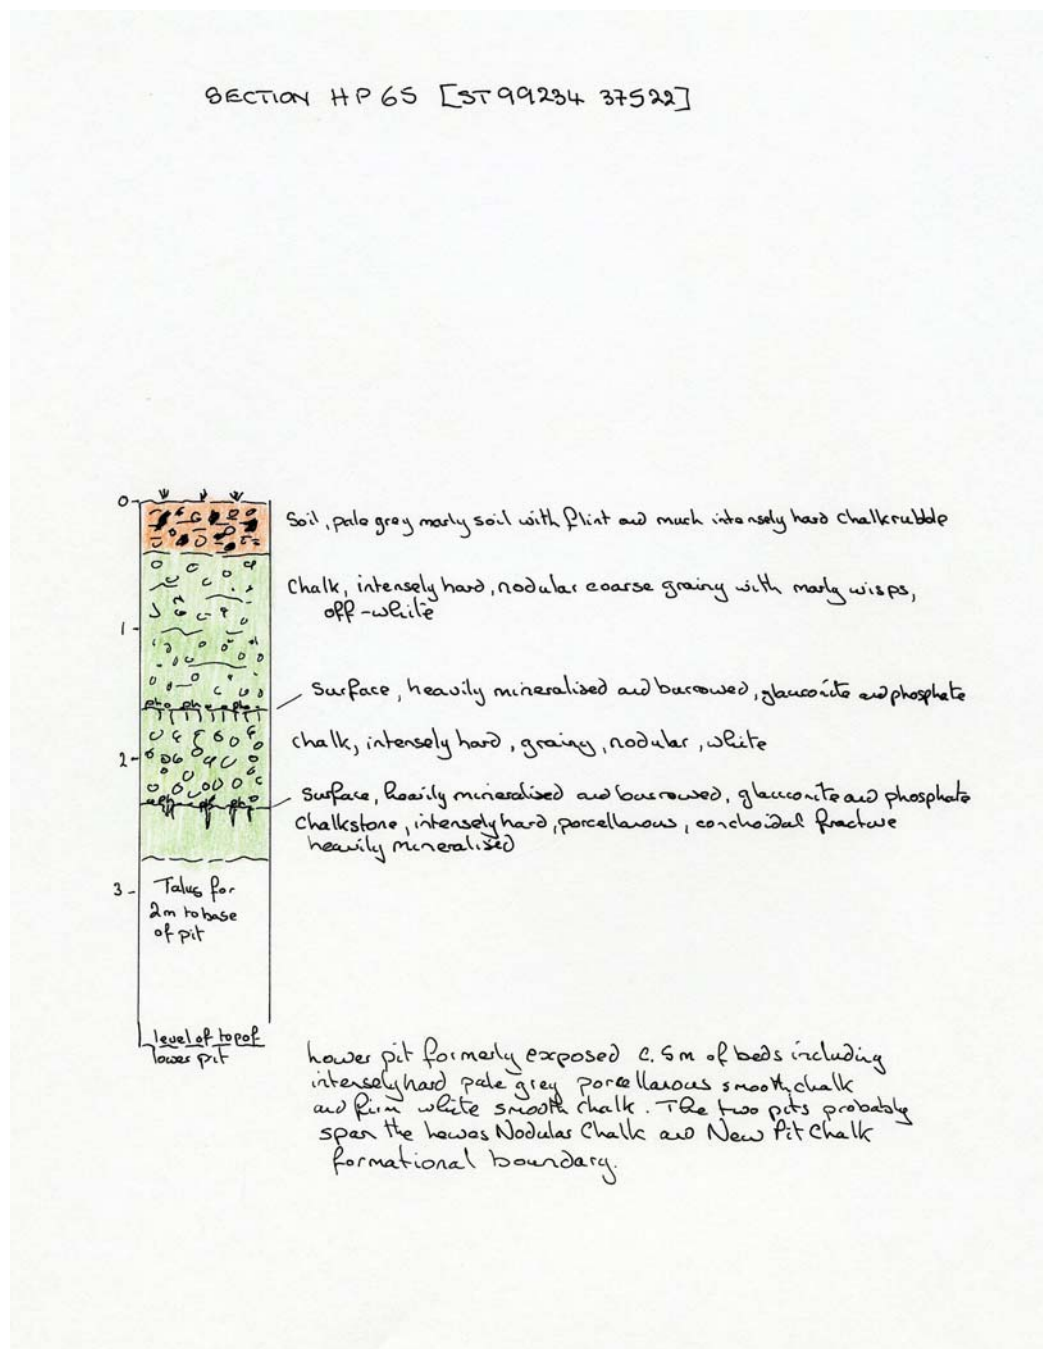 SECTION HP65 [ST 99234 37522]
0
Soil, pale grey marly soil with flint and much intensely hard chalk rubble
Chalk, intensely hard, nodular coarse grainy with marly wisps,
off-white
1
Surface, heavily mineralised and burrowed, glauconite and phosphate
ph ph ph
Chalk, intensely hard, grainy, nodular, white
2
Surface, heavily mineralised and burrowed, glauconite and phosphate
Chalkstone, intensely hard, porcellanous, conchoidal fracture
heavily mineralised
3
Talus for
2m to base
of pit
level of top of
lower pit
Lower pit formerly exposed c. 5m of beds including
intensely hard pale grey porcellanous smooth chalk
and firm white smooth chalk. The two pits probably
span the Lewes Nodular Chalk and New Pit Chalk
formational boundary.